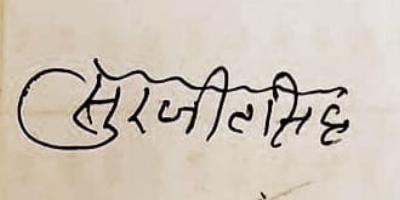 सुरजीतसिंह